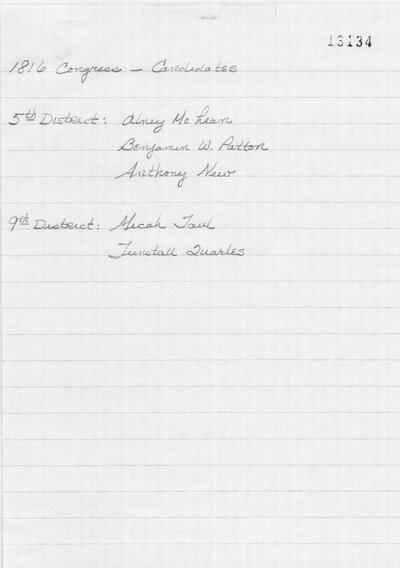 13134
1816 Congress — Candidates
5th District: Alney McLean
Benjamin W. Patton
Anthony New
9th District: Micah Taul
Tunstall Quarles